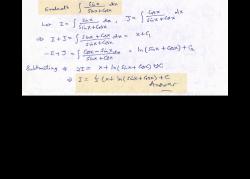 Evaluate ∫ sinx/(sinx+cosx) dx
Let I = ∫ sinx/(sinx+cosx) dx , J = ∫ cosx/(sinx+cosx) dx
⇒ I+J = ∫ (sinx+cosx)/(sinx+cosx) dx = x+C₁
-I+J = ∫ (cosx-sinx)/(sinx+cosx) dx = ln(sinx+cosx)+C₂
Subtracting ⇒ 2I = x + ln(sinx+cosx)
⇒ I = ½(x+ ln(sinx+cosx)+C
Answer